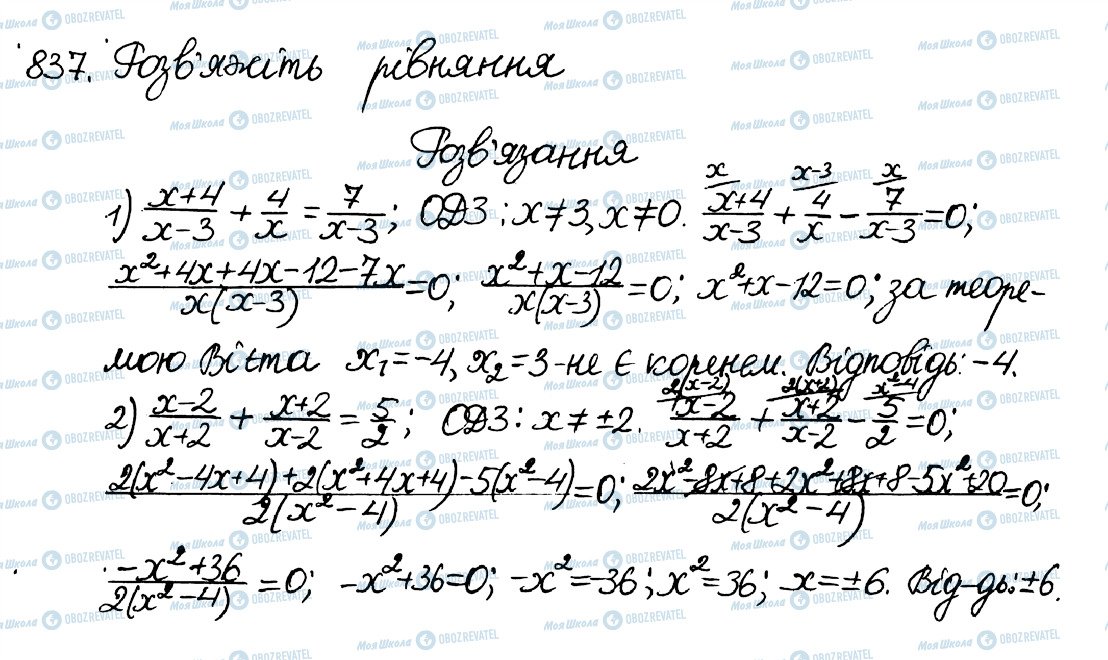 837. Розв'яжіть рівняння
Розв'язання
1) (x+4)/(x-3) + 4/x = 7/(x-3); ОДЗ: x≠3, x≠0. (x+4)/(x-3) ^x + 4/x ^(x-3) - 7/(x-3) ^x = 0;
(x²+4x+4x-12-7x)/(x(x-3)) = 0; (x²+x-12)/(x(x-3)) = 0; x²+x-12=0; за теоре-
мою Вієта x₁=-4, x₂=3 -не є коренем. Відповідь: -4.
2) (x-2)/(x+2) + (x+2)/(x-2) = 5/2; ОДЗ: x≠±2. (x-2)/(x+2) ^2(x-2) + (x+2)/(x-2) ^2(x+2) - 5/2 ^x²-4 = 0;
(2(x²-4x+4)+2(x²+4x+4)-5(x²-4))/(2(x²-4)) = 0; (2x²-8x+8+2x²+8x+8-5x²+20)/(2(x²-4)) = 0;
(-x²+36)/(2(x²-4)) = 0; -x²+36=0; -x²=-36; x²=36; x=±6. Від-дь: ±6.